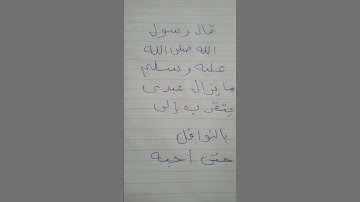 قال رسول
الله صلى الله
عليه وسلم
ما يزال عبدى
يتقرب إلى
بالنوافل
حتى أحبه